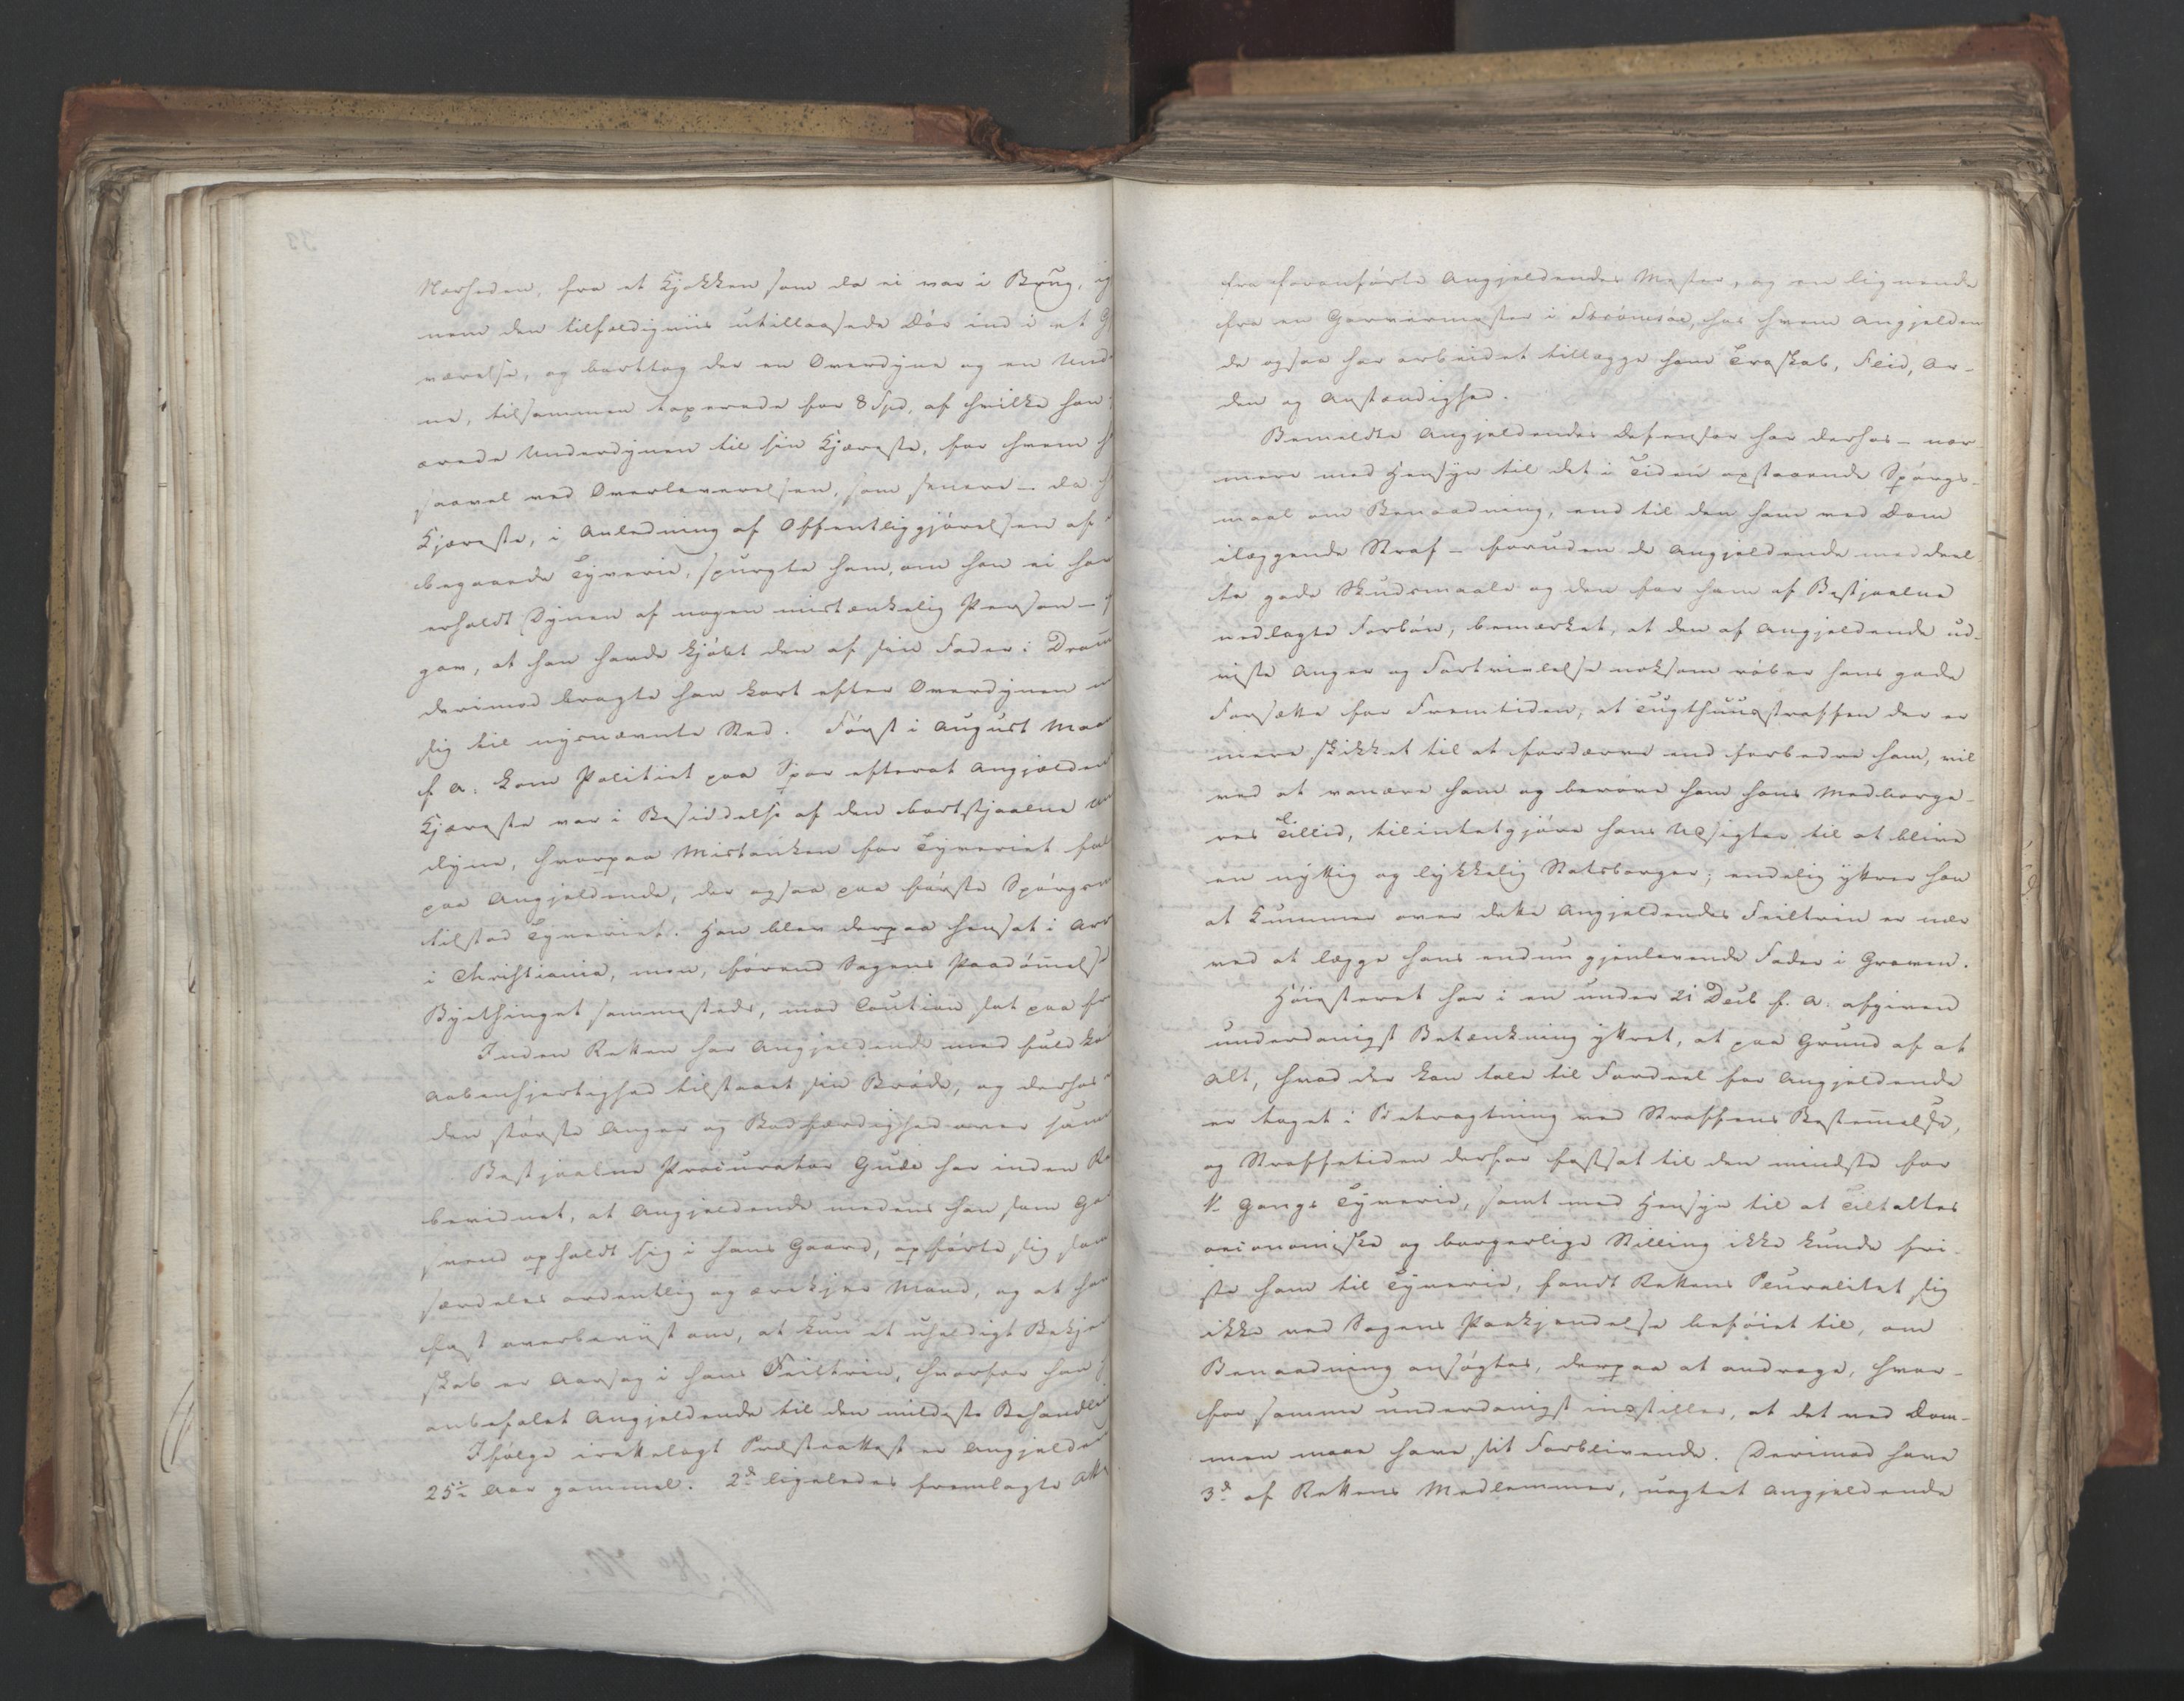 Nærheden, fra et Kjøkken som da ei var i Brug, ig
nem den tilfældigviis utillaasede Dør ind i et G
værelse, og borttog der en Overdyne og en Und
ne, tilsammen taxerede for 8 Spd, af hvilke han
ærede Underdynen til sin Kjæreste, for hvem h
saavel ved Overleverelsen, som senere – da h
Kjæreste, i Anledning af Offentliggjørelsen af
begaaede Tyverie, spurgte ham, om han ei har
erholdt Dynen af nogen mistænkelig Person –
gav, at han havde kjøbt den af sin Fader i Dram
derimod bragte han kort efter Overdynen
sig til nysnævnte Sted. Først i August Maa
f. A. kom Politiet paa Spor efterat Angjælden
Kjæreste var i Besiddelse af den bortstjaalne Un
dyne, hvorpaa Mistanken for Tyveriet fal
paa Angjeldende, der ogsaa paa første Spørgsm
tilstod Tyveriet. Han blev derpaa hensat i Arr
i Christiania, men, førend Sagens Paadømmelse
Byethinget sammesteds, mod Caution sat paa fr
Inden Retten har Angjeldende med fuldko
Aabenhjertighed tilstaaet sin Brøde, og derhos
den største Anger og Bodfærdighed over sam
Bestjaalne Procurator Gude har inden Re
bevidnet, at Angjeldende medens han som Ga
svend opholdt sig i hans Gaard, opførte sig som
særdeles ordentlig og ærekjær Mand, og at han
fast overbeviist om, at kun et uheldigt Bekje
skab er Aarsag i hans Feiltrin, hvorfor han
anbefalet Angjeldende til den mildeste Behandlin
Ifølge irettelagt Præsteattest er Angjelden
25 Aar gammel. 2de ligeledes fremlagte Att
fra foranførte Angjeldendes Mester, og en lignende
fra en Garvermester i Tromsøe, hos hvem Angjelden
de ogsaa har arbeidet tillægge ham Troskab, Flid, Or-
den og Anstændighed.
Bemeldte Angjeldendes Defensor har derhos – nær
mere med Hensyn til det i Tiden opstaaende Spørgs-
maal om Benaadning, end til den ham ved Dom
ilæggende Straf – foruden de Angjeldende meddeel
te gode Skudsmaale og den for ham af Bestjaalne
nedlagte Forbøn, bemærket, at den af Angjeldende ud-
viste Anger og Fortvivlelse noksom røber hans gode
Forsætte for Fremtiden, at Tugthuusstraffen der er
mere skikket til at fordærve end forbedre ham, vil
ved at vanære ham og berøve ham hans Medborge-
res Tillid, tilintetgjøre hans Udsigter til at blive
en nyttig og lykkelig Statsborger; endelig yttrer han
at Kummer over dette Angjeldendes Feiltrin er nær
ved at lægge hans endnu gjenlevende Fader i Graven.
Høiesteret har i en under 21 Decb f. A. afgiven
underdanigst Betænkning yttret, at paa Grund af at
Alt, hvad der kan tale til Fordeel for Angjeldende
er taget i Betragtning ved Straffens Bestemmelse,
og Straffetiden derfor fastsat til den mindste for
1ste Gangs Tyverie, samt med Hensyn til at Tiltaltes
oeconomiske og borgerlige Stilling ikke kunde fri-
ste ham til Tyverie, fandt Rettens Pluralitet sig
ikke ved Sagens Paakjendelse beføiet til, om
Benaadning ansøgtes, derpaa at andrage, hvor-
for samme underdanigst indstiller, at det ved Dom-
men maae have sit Forblivende. Derimod have
3de af Rettens Medlemmer, uagtet Angjeldende